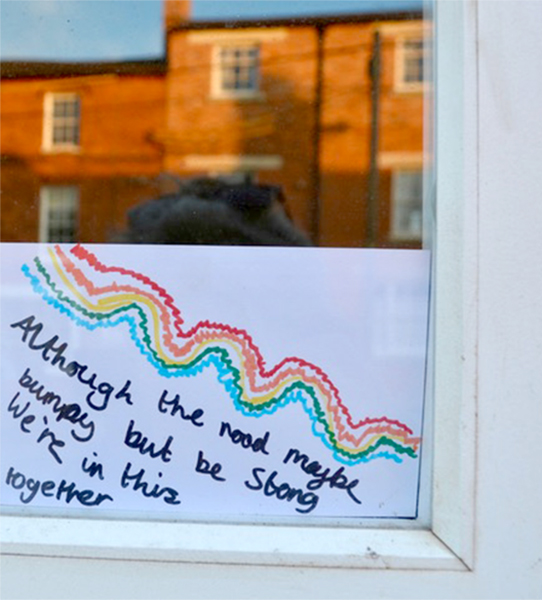 Although the road maybe
bumpy but be Stong
We're in this
together